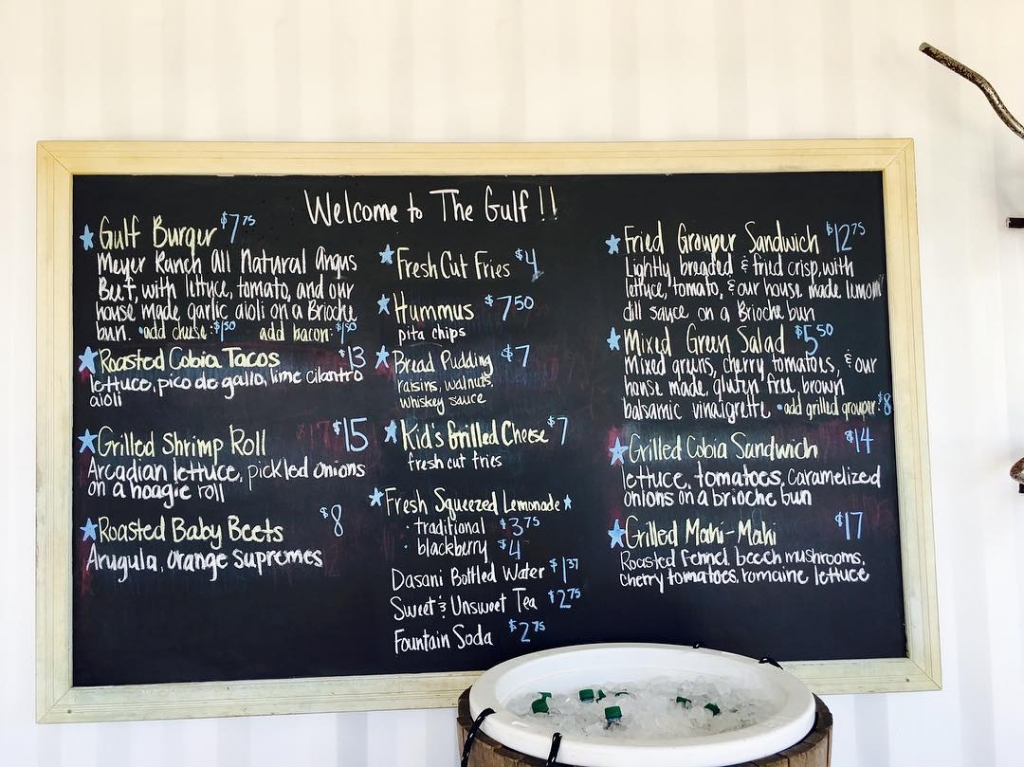 Welcome to The Gulf !!
★ Gulf Burger $7.75
Meyer Ranch All Natural Angus
Beef, with lettuce, tomato, and our
house made garlic aioli on a Brioche
bun. • add cheese: $1.50 add bacon: $1.50
★ Roasted Cobia Tacos $13
lettuce, pico de gallo, lime cilantro
aioli
★ Grilled Shrimp Roll $15
Arcadian lettuce, pickled onions
on a hoagie roll
★ Roasted Baby Beets $8
Arugula, orange supremes
★ Fresh Cut Fries $4
★ Hummus $7.50
pita chips
★ Bread Pudding $7
raisins, walnuts,
whiskey sauce
★ Kid's Grilled Cheese $7
fresh cut fries
★ Fresh Squeezed Lemonade ★
• traditional $3.75
• blackberry $4
Dasani Bottled Water $1.37
Sweet & Unsweet Tea $2.75
Fountain Soda $2.75
★ Fried Grouper Sandwich $12.75
Lightly breaded & fried crisp, with
lettuce, tomato, & our house made lemon/
dill sauce on a Brioche bun
★ Mixed Green Salad $5.50
Mixed greens, cherry tomatoes, & our
house made gluten free brown
balsamic vinaigrette • add grilled grouper: $8
★ Grilled Cobia Sandwich $14
lettuce, tomatoes, caramelized
onions on a brioche bun
★ Grilled Mahi-Mahi $17
Roasted fennel, beech mushrooms,
cherry tomatoes, romaine lettuce